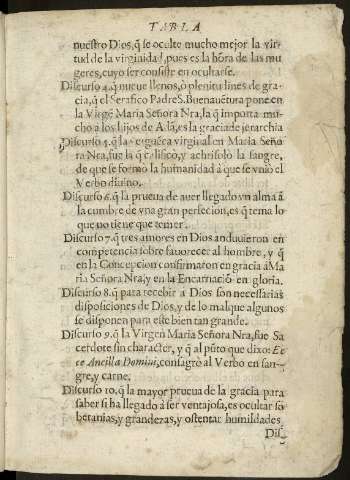 TABLA
nuestro Dios, q̃ se oculte mucho mejor la vir-
tud de la virginidad, pues es la hõra de las mu
geres, cuyo ser consiste en ocultarse.
Discurso 4. q̃ nueue llenos, ò plenitulines de gra-
cia, q̃ el Serafico Padre S. Buenauẽtura pone en
la Virgẽ Maria Señora Nra, la q̃ importa mu-
cho a los hijos de Adã, es la gracia de jerarchia
Discurso 5. q̃ la pureza virginal en Maria Seño
ra Nra, fue la q̃ calificò, y achrisolo la sangre,
de que se formo la humanidad à que se vnio el
Verbo diuino.
Discurso 6. q̃ la prueua de auer llegado vn alma à
la cumbre de vna gran perfecion, es q̃ tema lo
que no tiene que temer.
Discurso 7. q̃ tres amores en Dios anduuieron en
competencia sobre fauorecer al hombre, y q̃
en la Concepcion confirmaron en gracia à Ma
ria Señora Nra, y en la Encarnaciõ en gloria.
Discurso 8. q̃ para recebir a Dios son necessarias
disposiciones de Dios, y de lo mas que algunos
se disponen para este bien tan grande.
Discurso 9. q̃ la Virgen Maria Señora Nra, fue Sa
cerdote sin character, y q̃ al pũto que dixo: Ec
ce Ancilla Domini, consagrò al Verbo en san-
gre, y carne.
Discurso 10. q̃ la mayor prueua de la gracia para
saber si ha llegado à ser ventajosa, es ocultar so
beranias, y grandezas, y ostentar humildades
Dis-